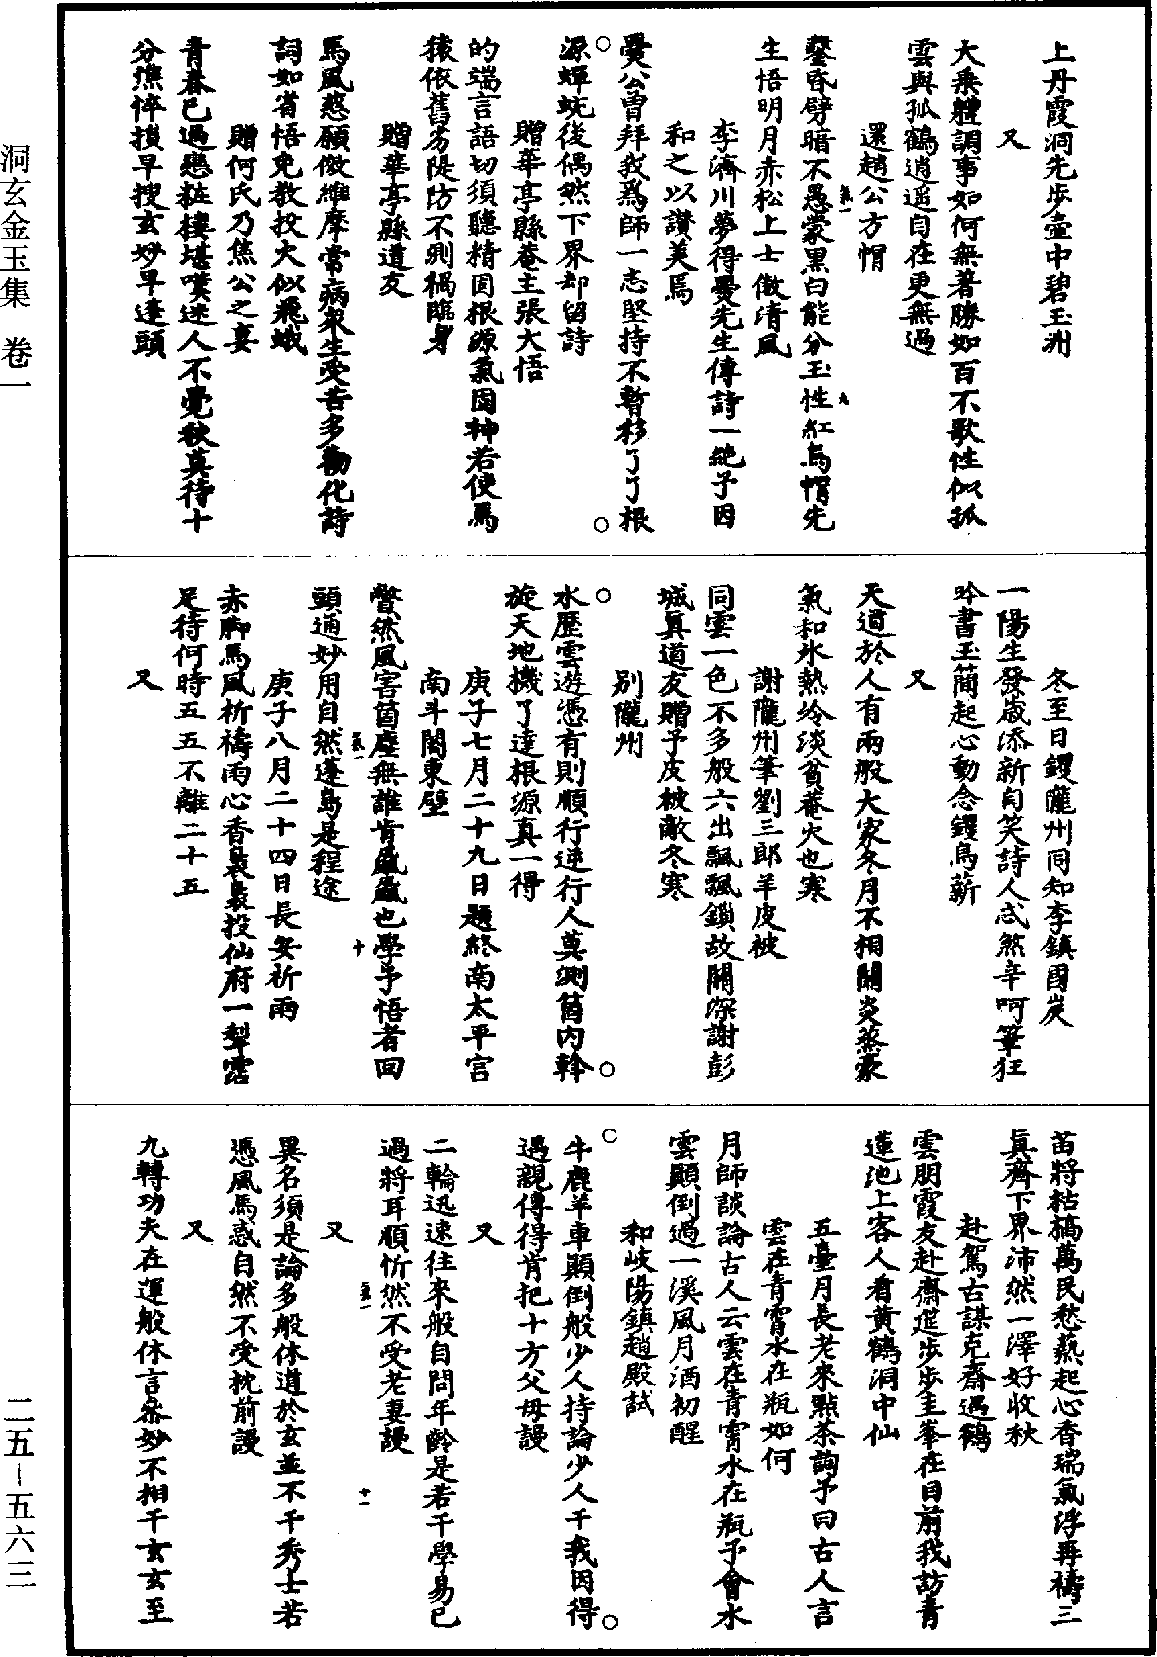 上丹霞洞先步壺中碧玉洲
又
大乘體調事如何無著勝如百不歌性似孤
雲與孤鶴逍遥自在更無過
還趙公方帽
鑿昏劈暗不愚蒙黑白能分玉性紅烏帽先
生悟明月赤松上士傲清風
李濟川夢得曇先生傳詩一絶予因
和之以讚美焉
曇公曾拜我爲師一志堅持不暫移了了根
源蟬蛻後偶然下界却留詩
贈華亭縣菴主張大悟
的端言語切須聽精固根源氣固神若使馬
猿依舊劣隄防不測禍臨身
贈華亭縣道友
馬風惹願傚維摩常病衆生受苦多勸化詩
詞如省悟免教投火似飛蛾
贈何氏乃焦公之妻
青春已過戀粧樓堪嘆迷人不覺秋莫待十
分憔悴損早搜玄妙早蓬頭
冬至日鑊隴州同知李鎮國炭
一陽生發歲添新自笑詩人忒煞辛呵筆狂
吟書玉簡起心動念鑊烏薪
又
天道於人有兩般大家冬月不相關炎蒸豪
氣和氷熱冷淡貧菴火也寒
謝隴州筆劉三郎羊皮被
同雲一色不多般六出飄飄鎖故關深謝彭
城真道友贈予皮被敵冬寒
別隴州
水歷雲遊憑有則順行逆行人莫測箇内幹
旋天地機了達根源真一得
庚子七月二十九日題終南太平宫
南斗閣東壁
瞥然風害箇塵無誰肯風風也學予悟者回
頭通妙用自然蓬島是程途
庚子八月二十四日長安祈雨
赤脚馬風祈禱雨心香裊裊投仙府一犁霑
足待何時五五不離二十五
又
苗將枯槁萬民愁爇起心香瑞氣浮再禱三
真齊下界沛然一澤好收秋
赴駕古謀克齋遇鶴
雲朋霞友赴齋筵步步圭峯在目前我訪青
蓮池上客人看黄鶴洞中仙
五臺月長老來點茶詢予曰古人言
雲在青霄水在瓶如何
月師談論古人云雲在青霄水在瓶予會水
雲顛倒過一溪風月酒初醒
和岐陽鎮趙殿試
牛鹿羊車顛倒般少人持論少人干我因得
遇親傳得肯把十方父母謾
又
二輪迅速往來般自問年齡是若干學易已
過將耳順忻然不受老妻謾
又
異名須是論多般休道於玄並不干秀士若
憑風馬惑自然不受枕前謾
又
九轉功夫在運般休言衆妙不相干玄玄至
洞玄金玉集 卷一
二五—五六三